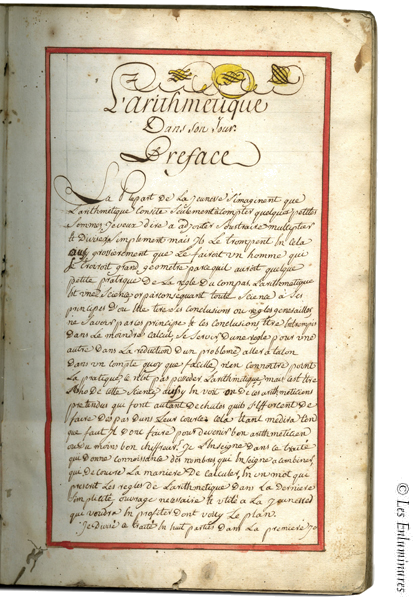 L'arithmetique
Dans son Jour.
Preface
La Plupart de La Jeunesse S'imaginent que
L'arithmetique Consite Seulement a Compter quelques petites
Sommes Je veux dire a adjouter Soustraire multiplier
& Diviser Simplement mais Ils Le trompent En Cela
aussy grossierement que Le Feroit vn homme qui
Se Croiroit grand geometre parcequil auroit quelque
petite pratique de La regle du Compas L'arithmetique
Est vne Science or par Consequant toute Science a Ses
principes D'ou Elle tire Ses Conclusions ou regles generalles
ne Savoir pas Ses principes & Ces Conclusions Estre Interompu
Dans Le moindre Calcul, Se Servir D'une regle pour vne
autre Dans La reduction d'un probleme, aller a taton
dans vn Compte quoy que facille, n'en Connatre point
La pratique, Ce n'est pas posseder L'arithmetique, mais Cest Estre
de aussy En voit on de Ces arithmeticiens
pretendus qui font autant de chutes quils S'efforcent de
faire Des pas Dans Leur Courte Cela Etant medire
que faut Il donc faire pour devenir bon arithmeticien
ou du moins bon chiffreur, Je L'Enseigne dans Ce traité
qui donne Connoissance des nombres qui Enseigne a Combiner,
qui decouvre La maniere De Calculer, En vn mot qui
present Les regles de L'arithmetique Dans La derniere
Simplicité, ouvrage necessaire & vtile a La Jeunesse
qui voudra En profiter dont voicy Le plan.
Je divise Ce traité En huit parties Dans La premiere Je
© Les Enluminures